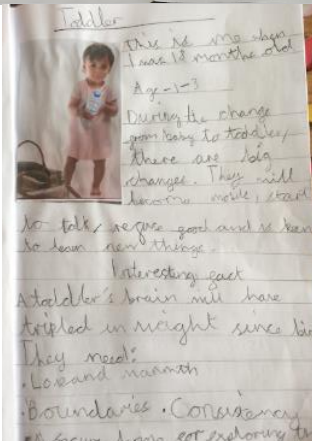 Toddler
this is me when
I was 18 months old
Age - 1-3
During the change
from baby to toddler,
there are big
changes. They will
become mobile, start
to talk, refuse food and is keen
to learn new things.
Interesting fact
A toddler's brain will have
tripled in weight since
They need:
. Love and warmth
. Boundaries . Consistency
for exploring